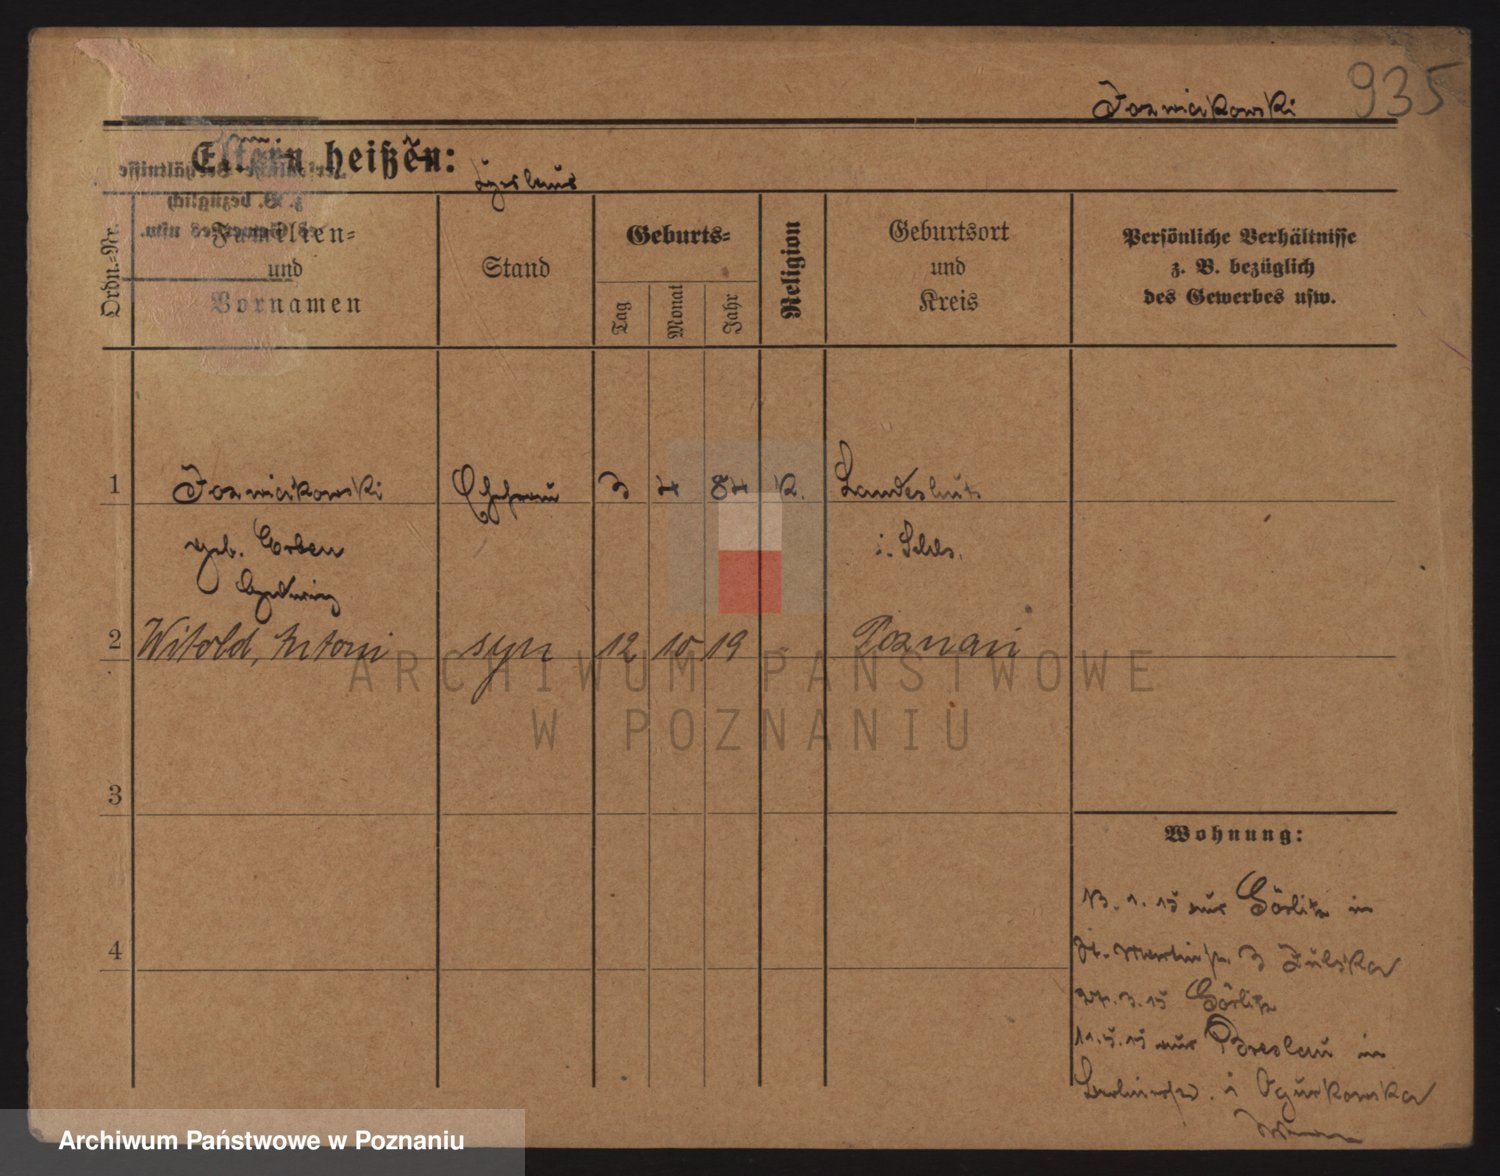 935
Jozwiakowski
Eltern heißen:
Ordn.-Nr.
Familien-
und
Vornamen
Stand
Geburts-
Tag
Monat
Jahr
Religion
Geburtsort
und
Kreis
Persönliche Verhältnisse
z. B. bezüglich
des Gewerbes usw.
1 Jozwiakowski Ehefrau 3 4 84 K. Landeshut
geb. i. Schls.
Hedwig
2 Witold, Antoni syn 12 10 19 Poznań
3
4
Wohnung:
13. 1. 15 aus Görlitz in
St. Martinstr. 3
27. 3. 15 Görlitz
11. 5. 15 aus Breslau in
ARCHIWUM PAŃSTWOWE
W POZNANIU
Archiwum Państwowe w Poznaniu